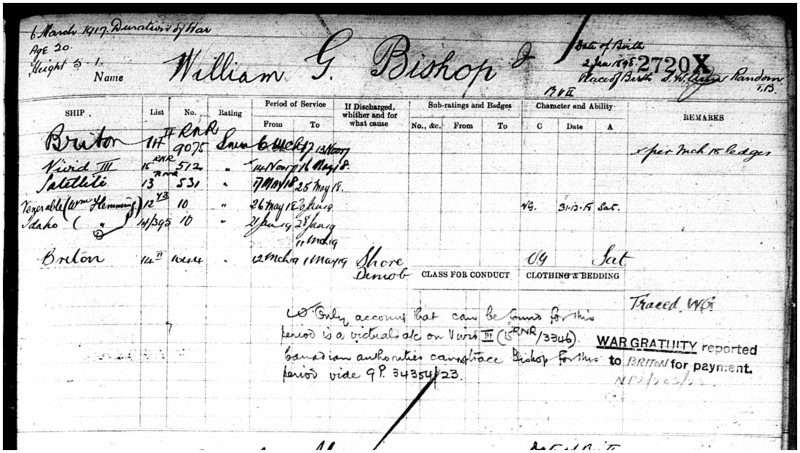 6 March 1917 Duration of War
Age 20.
Height 5 . 1.
Name William G. Bishop
Date of Birth
2 Jan 1898
2720X
Place of Birth
Random
SHIP.
List
No.
Rating
Period of Service
From
To
If Discharged, whither and for what cause
Sub-ratings and Badges
No., &c.
From
To
Character and Ability
C
Date
A
REMARKS
Briton 14 II RNR 9075 6 Mch 17 13 Nov 17
Vivid III 15 RNR 512 " 14 Nov 17 16 May 18.
Satellite 13 RNR 531 " 17 May 18 25 May 18.
Venerable (Wm Flemming) 12 10 " 26 May 18 VG. 31.12.18 Sat.
Idaho ( " ) 14/395 10 21 Jan 19 28 Jan 19
11 Mch 19
Briton 14 II " 12 Mch 19 1 May 19 Shore VG Sat
Demob
CLASS FOR CONDUCT
CLOTHING & BEDDING
Traced. WG
Only account that can be found for this
period is a victual a/c on Vivid III (15 RNR/3346).
Canadian authorities cannot trace Bishop for this
period vide G.P. 34354/23.
WAR GRATUITY reported
to BRITON for payment.